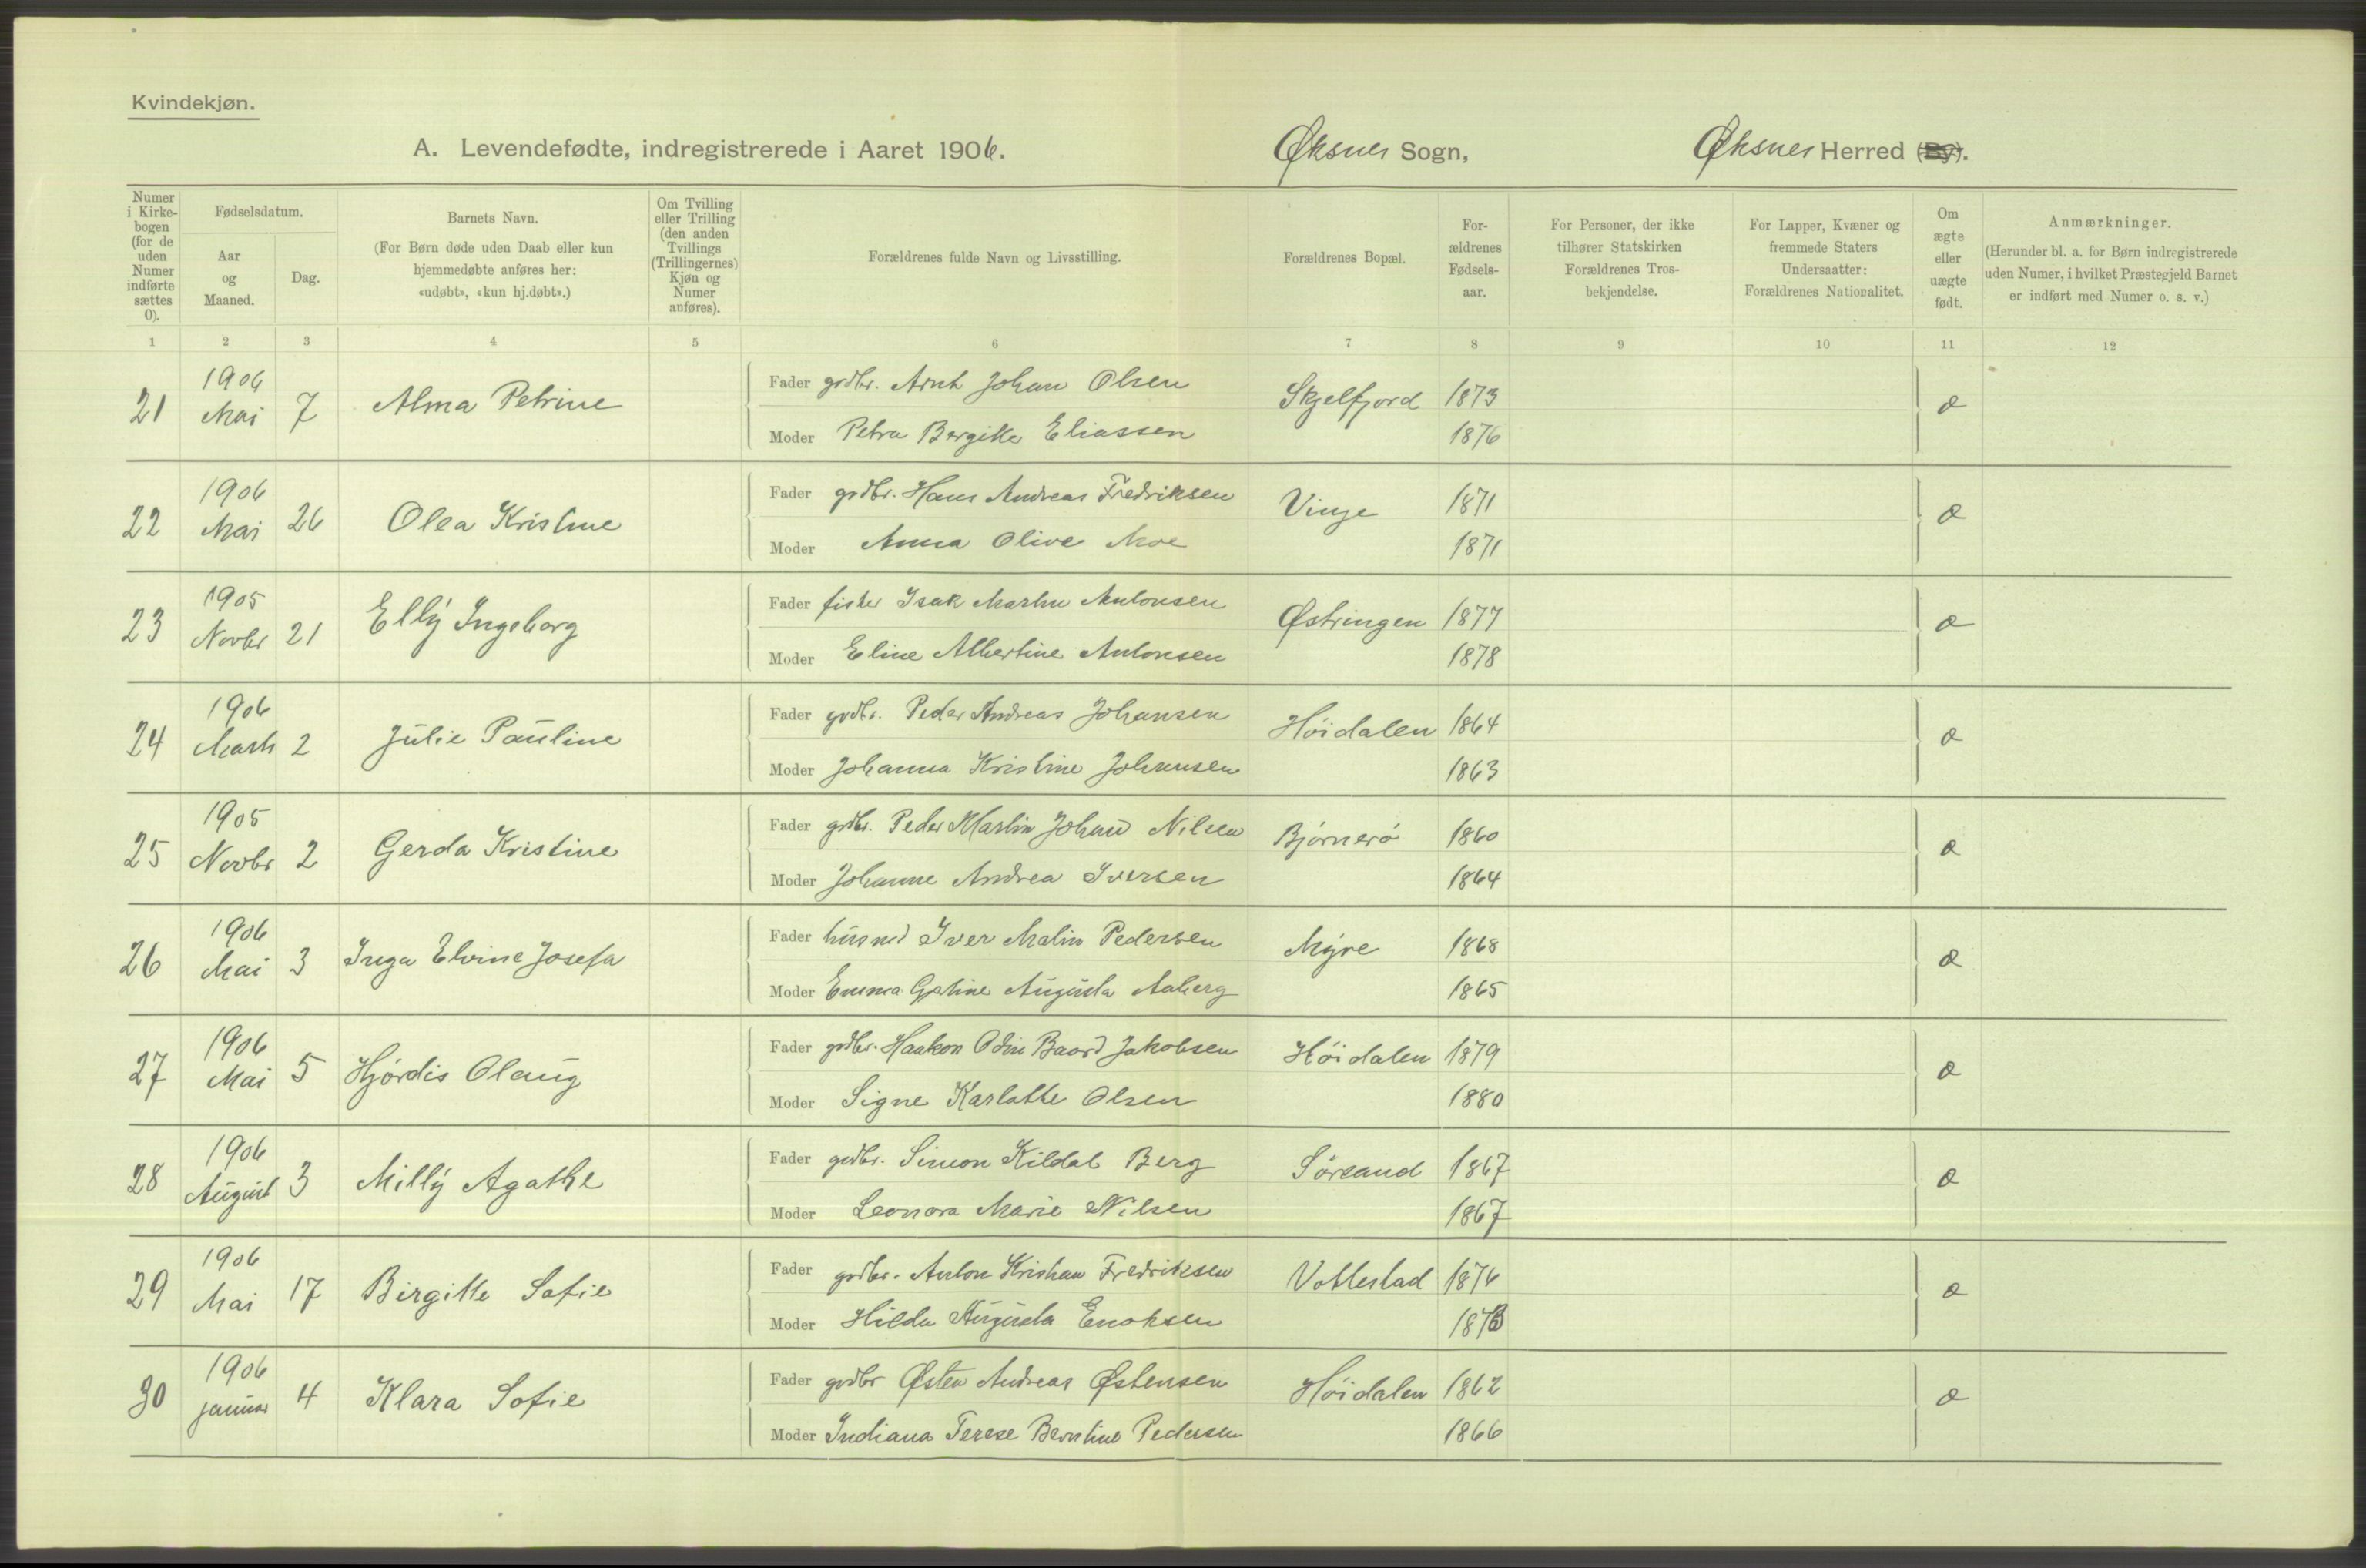 Kvindekjøn.
A. Levendefødte, indregistrerede i Aaret 1906. Øksnes Sogn, Øksnes Herred (By).
Numer i Kirkebogen (for de uden Numer indførte sættes 0).
Fødselsdatum.
Aar og Maaned.
Dag.
Barnets Navn.
(For Børn døde uden Daab eller kun hjemmedøbte anføres her: «udøbt», «kun hj.døbt».)
Om Tvilling eller Trilling (den anden Tvillings (Trillingernes) Kjøn og Numer anføres).
Forældrenes fulde Navn og Livsstilling.
Forældrenes Bopæl.
For-ældrenes Fødsels-aar.
For Personer, der ikke tilhører Statskirken Forældrenes Tros-bekjendelse.
For Lapper, Kvæner og fremmede Staters Undersaatter: Forældrenes Nationalitet.
Om ægte eller uægte født.
Anmærkninger.
(Herunder bl. a. for Børn indregistrerede uden Numer, i hvilket Præstegjeld Barnet er indført med Numer o. s. v.)
1 2 3 4 5 6 7 8 9 10 11 12
21 1906 Mai 7 Alma Petrine Fader grdbr. Arnt Johan Olsen Skjelfjord 1873 æ
Moder Petra Bergitte Eliassen 1876
22 1906 Mai 26 Olea Kristine Fader grdbr. Hans Andreas Fredriksen Vinje 1871 æ
Moder Anna Olive Moe 1871
23 1905 Novbr 21 Elly Ingeborg Fader fisker Isak Martin Antonsen Østringen 1877 æ
Moder Eline Albertine Antonsen 1878
24 1906 Marts 2 Julie Pauline Fader grdbr. Peder Andreas Johansen Höidalen 1864 æ
Moder Johanna Kristine Johansen 1863
25 1905 Novbr 2 Gerda Kristine Fader grdbr. Peder Martin Johan Nilsen Björnerö 1860 æ
Moder Johanne Andrea Iversen 1864
26 1906 Mai 3 Inga Elvine Josefa Fader husmd Iver Malin Pedersen Myre 1868 æ
Moder Emma Gjetine Augusta Aaberg 1865
27 1906 Mai 5 Hjördis Olaug Fader grdbr. Haakon Odin Baard Jakobsen Höidalen 1879 æ
Moder Signe Karlotte Olsen 1880
28 1906 August 3 Milly Agathe Fader grdbr. Simon Kildal Berg Sörsand 1867 æ
Moder Leonora Marie Nilsen 1867
29 1906 Mai 17 Birgitte Sofie Fader grdbr. Anton Kristian Fredriksen Vottestad 1874 æ
Moder Hilda Augusta Enoksen 1873
30 1906 januar 4 Klara Sofie Fader grdbr Østen Andreas Østensen Höidalen 1862 æ
Moder Indiana Terese Berntine Pedersen 1866